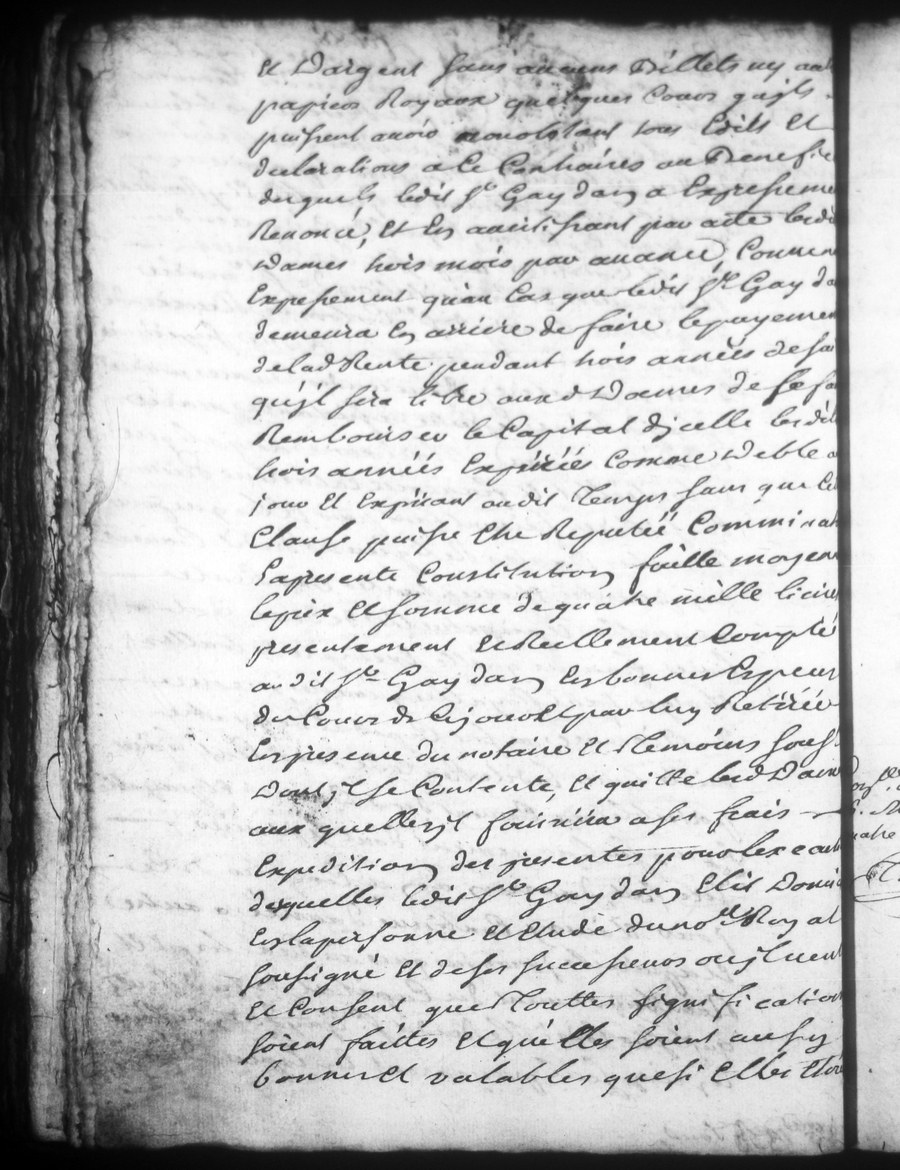 et dargent sans aucuns Billets ny au
papiers Royaux quelques Cours qujls
puissent avoir nonobstant tous Edits Et
declarations a Ce Contraires au Benefi
desquels ledit Sr Gaydan a Expresseme
Renoncé, Et En avertissant par acte lesd
Dames trois mois par avance, Convenu
Expressement qu'au Cas que ledit Sr Gayda
demeura En arriere de faire le payemen
de lad Rente pendant trois années de sa
qu'jl sera libre auxd Dames de se fa
Rembourser le Capital djcelle lesdit
trois années Expirées Comme deble a
jour Et Expirant audit Temps sans que Ce
Clause puisse Etre Reputée Comminat
La presente Constitution faitte moyen
le prix Et somme de quatre mille livres
presentement Et Reellement Compté
audit Sr Gaydan En bonnes Especes
du Cours de Cejourdt par luy Retirée
En presence du notaire Et Temoins sous
Dont jl se Contente, Et quitte lesd Dame
aux quelles jl fournira a ses frais
Expedition des presentes pour lexecut
desquelles ledit Sr Gaydan Elit Domi
En la personne Et Etude du nore Royal
sousigné Et de ses successeurs ou jl veut
Et Consent que Touttes significatio
soient faittes Et quélles soient aussy
bonnes Et valables que si Elles Etoi